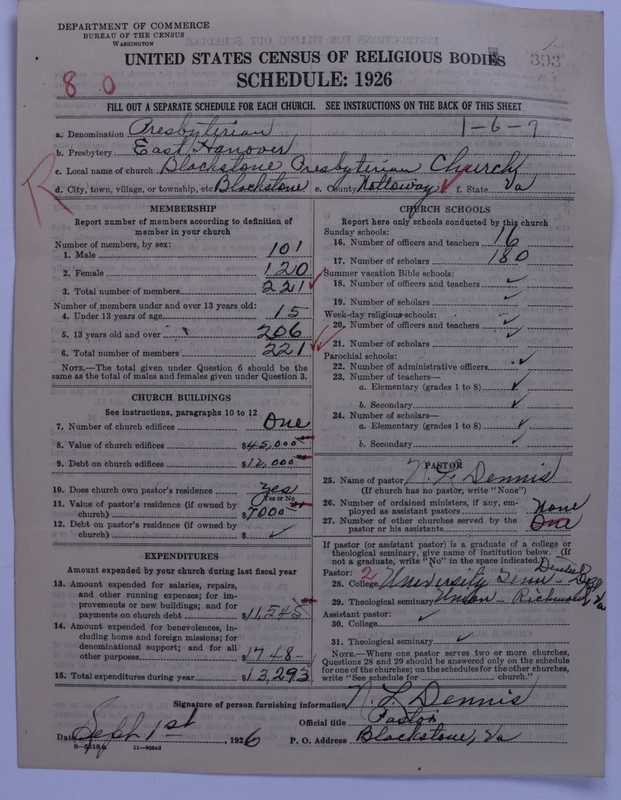 DEPARTMENT OF COMMERCE
BUREAU OF THE CENSUS
WASHINGTON
UNITED STATES CENSUS OF RELIGIOUS BODIES
393
SCHEDULE: 1926
8 0
FILL OUT A SEPARATE SCHEDULE FOR EACH CHURCH. SEE INSTRUCTIONS ON THE BACK OF THIS SHEET
a. Denomination Presbyterian 1-6-7
b. Presbytery East Hanover
c. Local name of church Blackstone Presbyterian Church
R
d. City, town, village, or township, etc Blackstone e. County Nottoway f. State Va
MEMBERSHIP
Report number of members according to definition of
member in your church
Number of members, by sex:
1. Male 101
2. Female 120
3. Total number of members 221
Number of members under and over 13 years old:
4. Under 13 years of age 15
5. 13 years old and over 206
6. Total number of members 221
NOTE.—The total given under Question 6 should be the
same as the total of males and females given under Question 3.
CHURCH BUILDINGS
See instructions, paragraphs 10 to 12
7. Number of church edifices One
8. Value of church edifices $45,000
9. Debt on church edifices $12,000
10. Does church own pastor's residence Yes
Yes or No
11. Value of pastor's residence (if owned by
church) $7000
12. Debt on pastor's residence (if owned by
church) $ ✓
EXPENDITURES
Amount expended by your church during last fiscal year
13. Amount expended for salaries, repairs,
and other running expenses; for im-
provements or new buildings; and for
payments on church debt $11,545
14. Amount expended for benevolences, in-
cluding home and foreign missions; for
denominational support; and for all
other purposes $1748-
15. Total expenditures during year $13,293
CHURCH SCHOOLS
Report here only schools conducted by this church
Sunday schools:
16. Number of officers and teachers 16
17. Number of scholars 180
Summer vacation Bible schools:
18. Number of officers and teachers ✓
19. Number of scholars ✓
Week-day religious schools:
20. Number of officers and teachers ✓
21. Number of scholars ✓
Parochial schools:
22. Number of administrative officers ✓
23. Number of teachers—
a. Elementary (grades 1 to 8) ✓
b. Secondary ✓
24. Number of scholars—
a. Elementary (grades 1 to 8) ✓
b. Secondary ✓
PASTOR
25. Name of pastor Dennis
(If church has no pastor, write "None")
26. Number of ordained ministers, if any, em-
ployed as assistant pastors None
27. Number of other churches served by the
pastor or his assistants One
If pastor (or assistant pastor) is a graduate of a college or
theological seminary, give name of institution below. (If
not a graduate, write "No" in the space indicated)
Pastor: 2
28. College University Penn
29. Theological seminary Union - Richmond Va
Assistant pastor:
30. College ✓
31. Theological seminary ✓
NOTE.—Where one pastor serves two or more churches,
Questions 28 and 29 should be answered only on the schedule
for one of the churches; on the schedules for the other churches,
write "See schedule for church."
Signature of person furnishing information Dennis
Official title Pastor
Date Sept 1st, 1926 P. O. Address Blackstone, Va